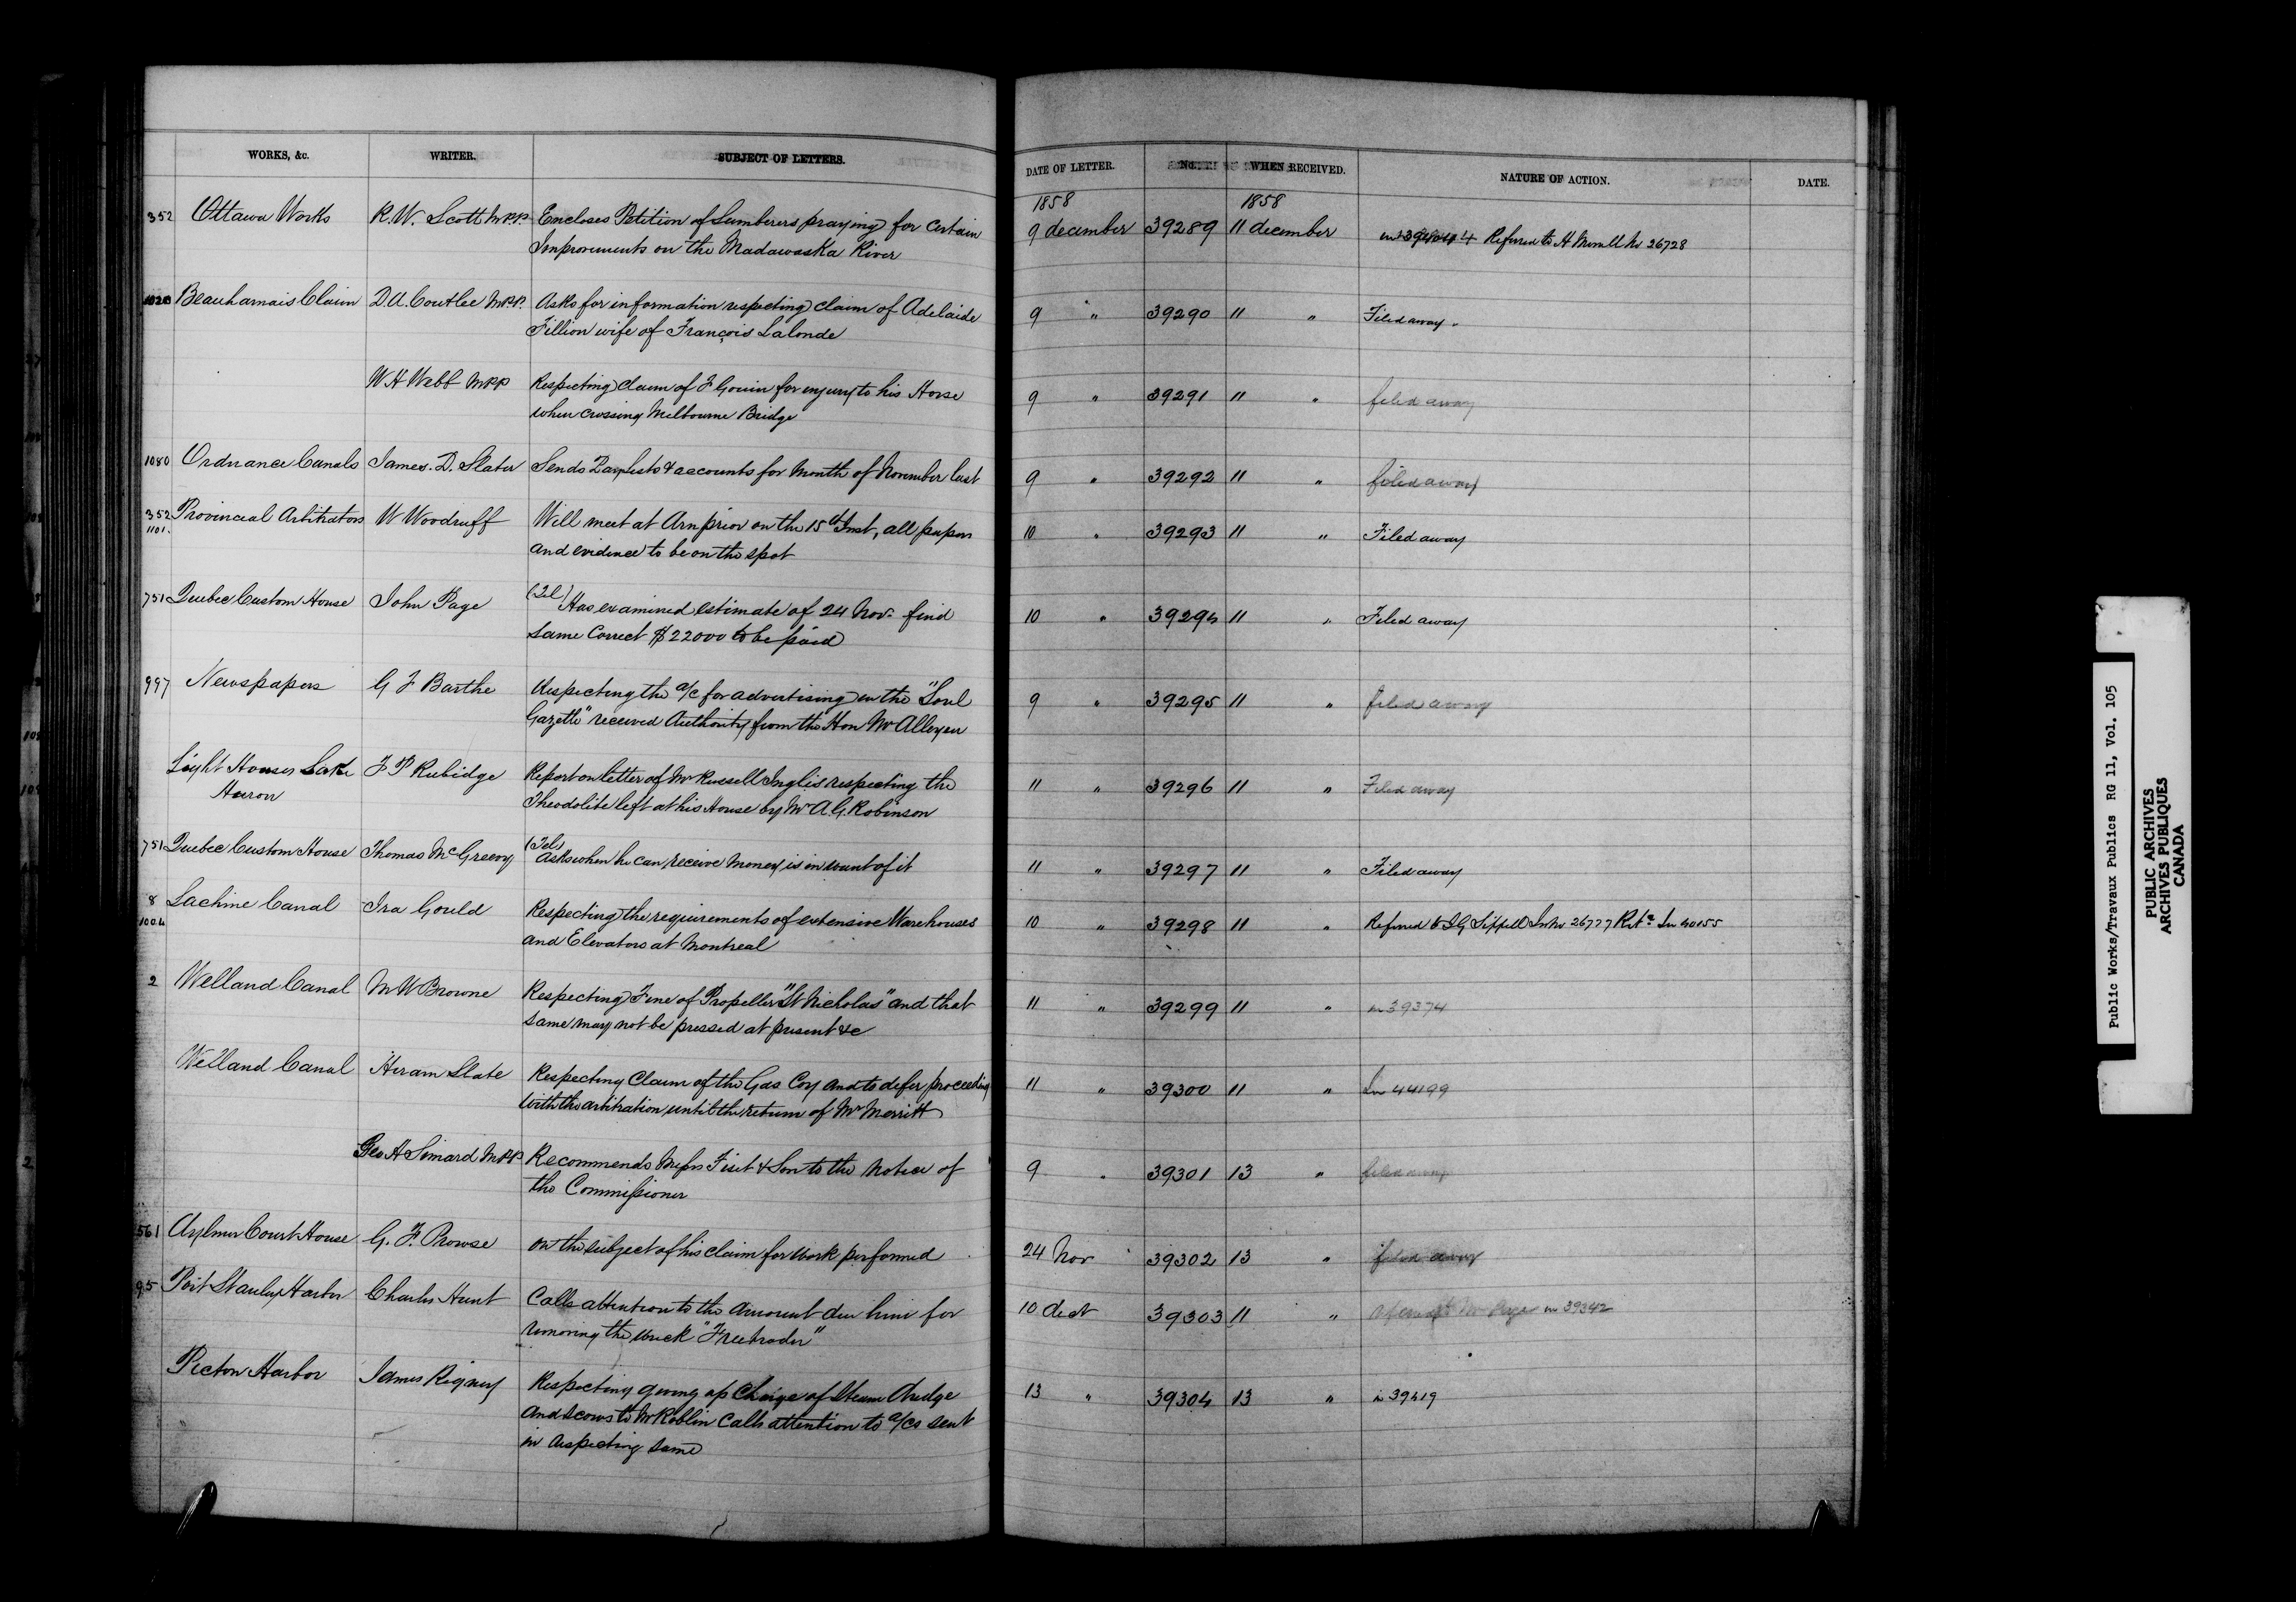 WORKS, &c. WRITER. SUBJECT OF LETTERS. DATE OF LETTER. No. WHEN RECEIVED. NATURE OF ACTION. DATE.
1858 1858
352 Ottawa Works R.W. Scott M.P.P. Encloses Petition of Lumberers praying for certain 9 december 39289 11 december Referred to H Merrill No 26728
Improvements on the Madawaska River
1020 Beauharnais Claim D.A. Coutlee M.P.P. Asks for information respecting claim of Adelaide 9 " 39290 11 " Filed away.
Fillion wife of François Lalonde
W H Webb MPP Respecting claim of F Gouin for injury to his Horse 9 " 39291 11 " filed away
when crossing Melbourne Bridge
1080 Ordnance Canals James. D. Slater Sends Paylists & accounts for Month of November last 9 " 39292 11 " filed away
352 Provincial Arbitrators W Woodruff Will meet at Arnprior on the 15th Inst, all papers 10 " 39293 11 " Filed away
1101. and evidence to be on the spot
751 Quebec Custom House John Page (Tel) Has examined estimate of 24 Nov. find 10 " 39294 11 " Filed away
same correct $22000 to be paid
997 Newspapers G F Barthe Respecting the a/c for advertising in the "Sorel 9 " 39295 11 " filed away
Gazette" received Authority from the Hon Mr Alleyn
Light Houses Lake F P Rubidge Report on letter of Mr Russell Inglis respecting the 11 " 39296 11 " Filed away
Huron Theodolite left at his House by Mr A.G. Robinson
751 Quebec Custom House Thomas McGreevy (Tel) Asks when he can receive money, is in want of it 11 " 39297 11 " Filed away
8 Lachine Canal Ira Gould Respecting the requirements of extensive Warehouses 10 " 39298 11 " Referred to J G Sippell 26777 Retd In 40155
1004 and Elevators at Montreal
2 Welland Canal M W Browne Respecting Fine of Propeller "St Nicholas" and that 11 " 39299 11 " in 39374
same may not be pressed at present &c
Welland Canal Hiram Slate Respecting Claim of the Gas Coy and to defer proceeding 11 " 39300 11 " In 44199
with the arbitration until the return of Mr Merritt
Geo H Simard M.P.P. Recommends Messrs Fiset & Son to the notice of 9 " 39301 13 " filed away
the Commissioner
561 Aylmer Court House G. F. Prowse on the subject of his claim for work performed 24 Nov 39302 13 " filed away
95 Port Stanley Harbor Charles Hunt Calls attention to the amount due him for 10 dect 39303 11 " Mr Page in 39342
removing the wreck "Freetrader"
Picton Harbor James Rigney Respecting giving up Charge of Steam dredge 13 " 39304 13 " in 39419
and scows to Mr Roblin Calls attention to a/cs sent
in respecting same
Public Works/Travaux Publics RG 11, Vol. 105
PUBLIC ARCHIVES
ARCHIVES PUBLIQUES
CANADA